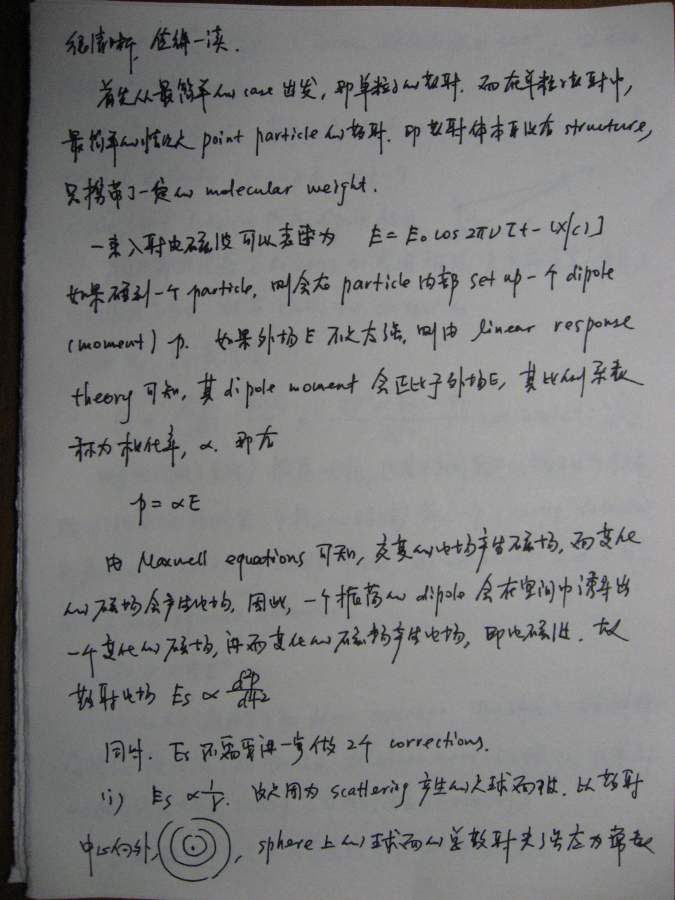 很清晰, 值得一读.
首先从最简单的 case 出发, 即单粒子的散射. 而在单粒子散射中,
最简单的情况是 point particle 的散射. 即散射体本身没有 structure,
只携带了一定的 molecular weight.
一束入射电磁波可以表达为 E = E₀ cos 2πν [t - (x/c)]
如果碰到一个 particle, 则会在 particle 内部 set up 一个 dipole
(moment) p. 如果外场 E 不是太强, 则由 linear response
theory 可知, 其 dipole moment 会正比于外场E, 其比例系数
称为极化率, α. 即有
p = αE
由 Maxwell equations 可知, 交变的电场产生磁场, 而变化
的磁场会产生电场, 因此, 一个振荡的 dipole 会在空间中诱导出
一个变化的磁场, 再而变化的磁场产生电场, 即电磁波. 故
散射电场 Es ∝ d²p/dt²
同时, Es 还需要进一步做 2个 corrections.
(i) Es ∝ 1/r. 这是因为 scattering 产生的是球面波. 以散射
中心向外, , sphere 上的球面的总散射光强应为常数